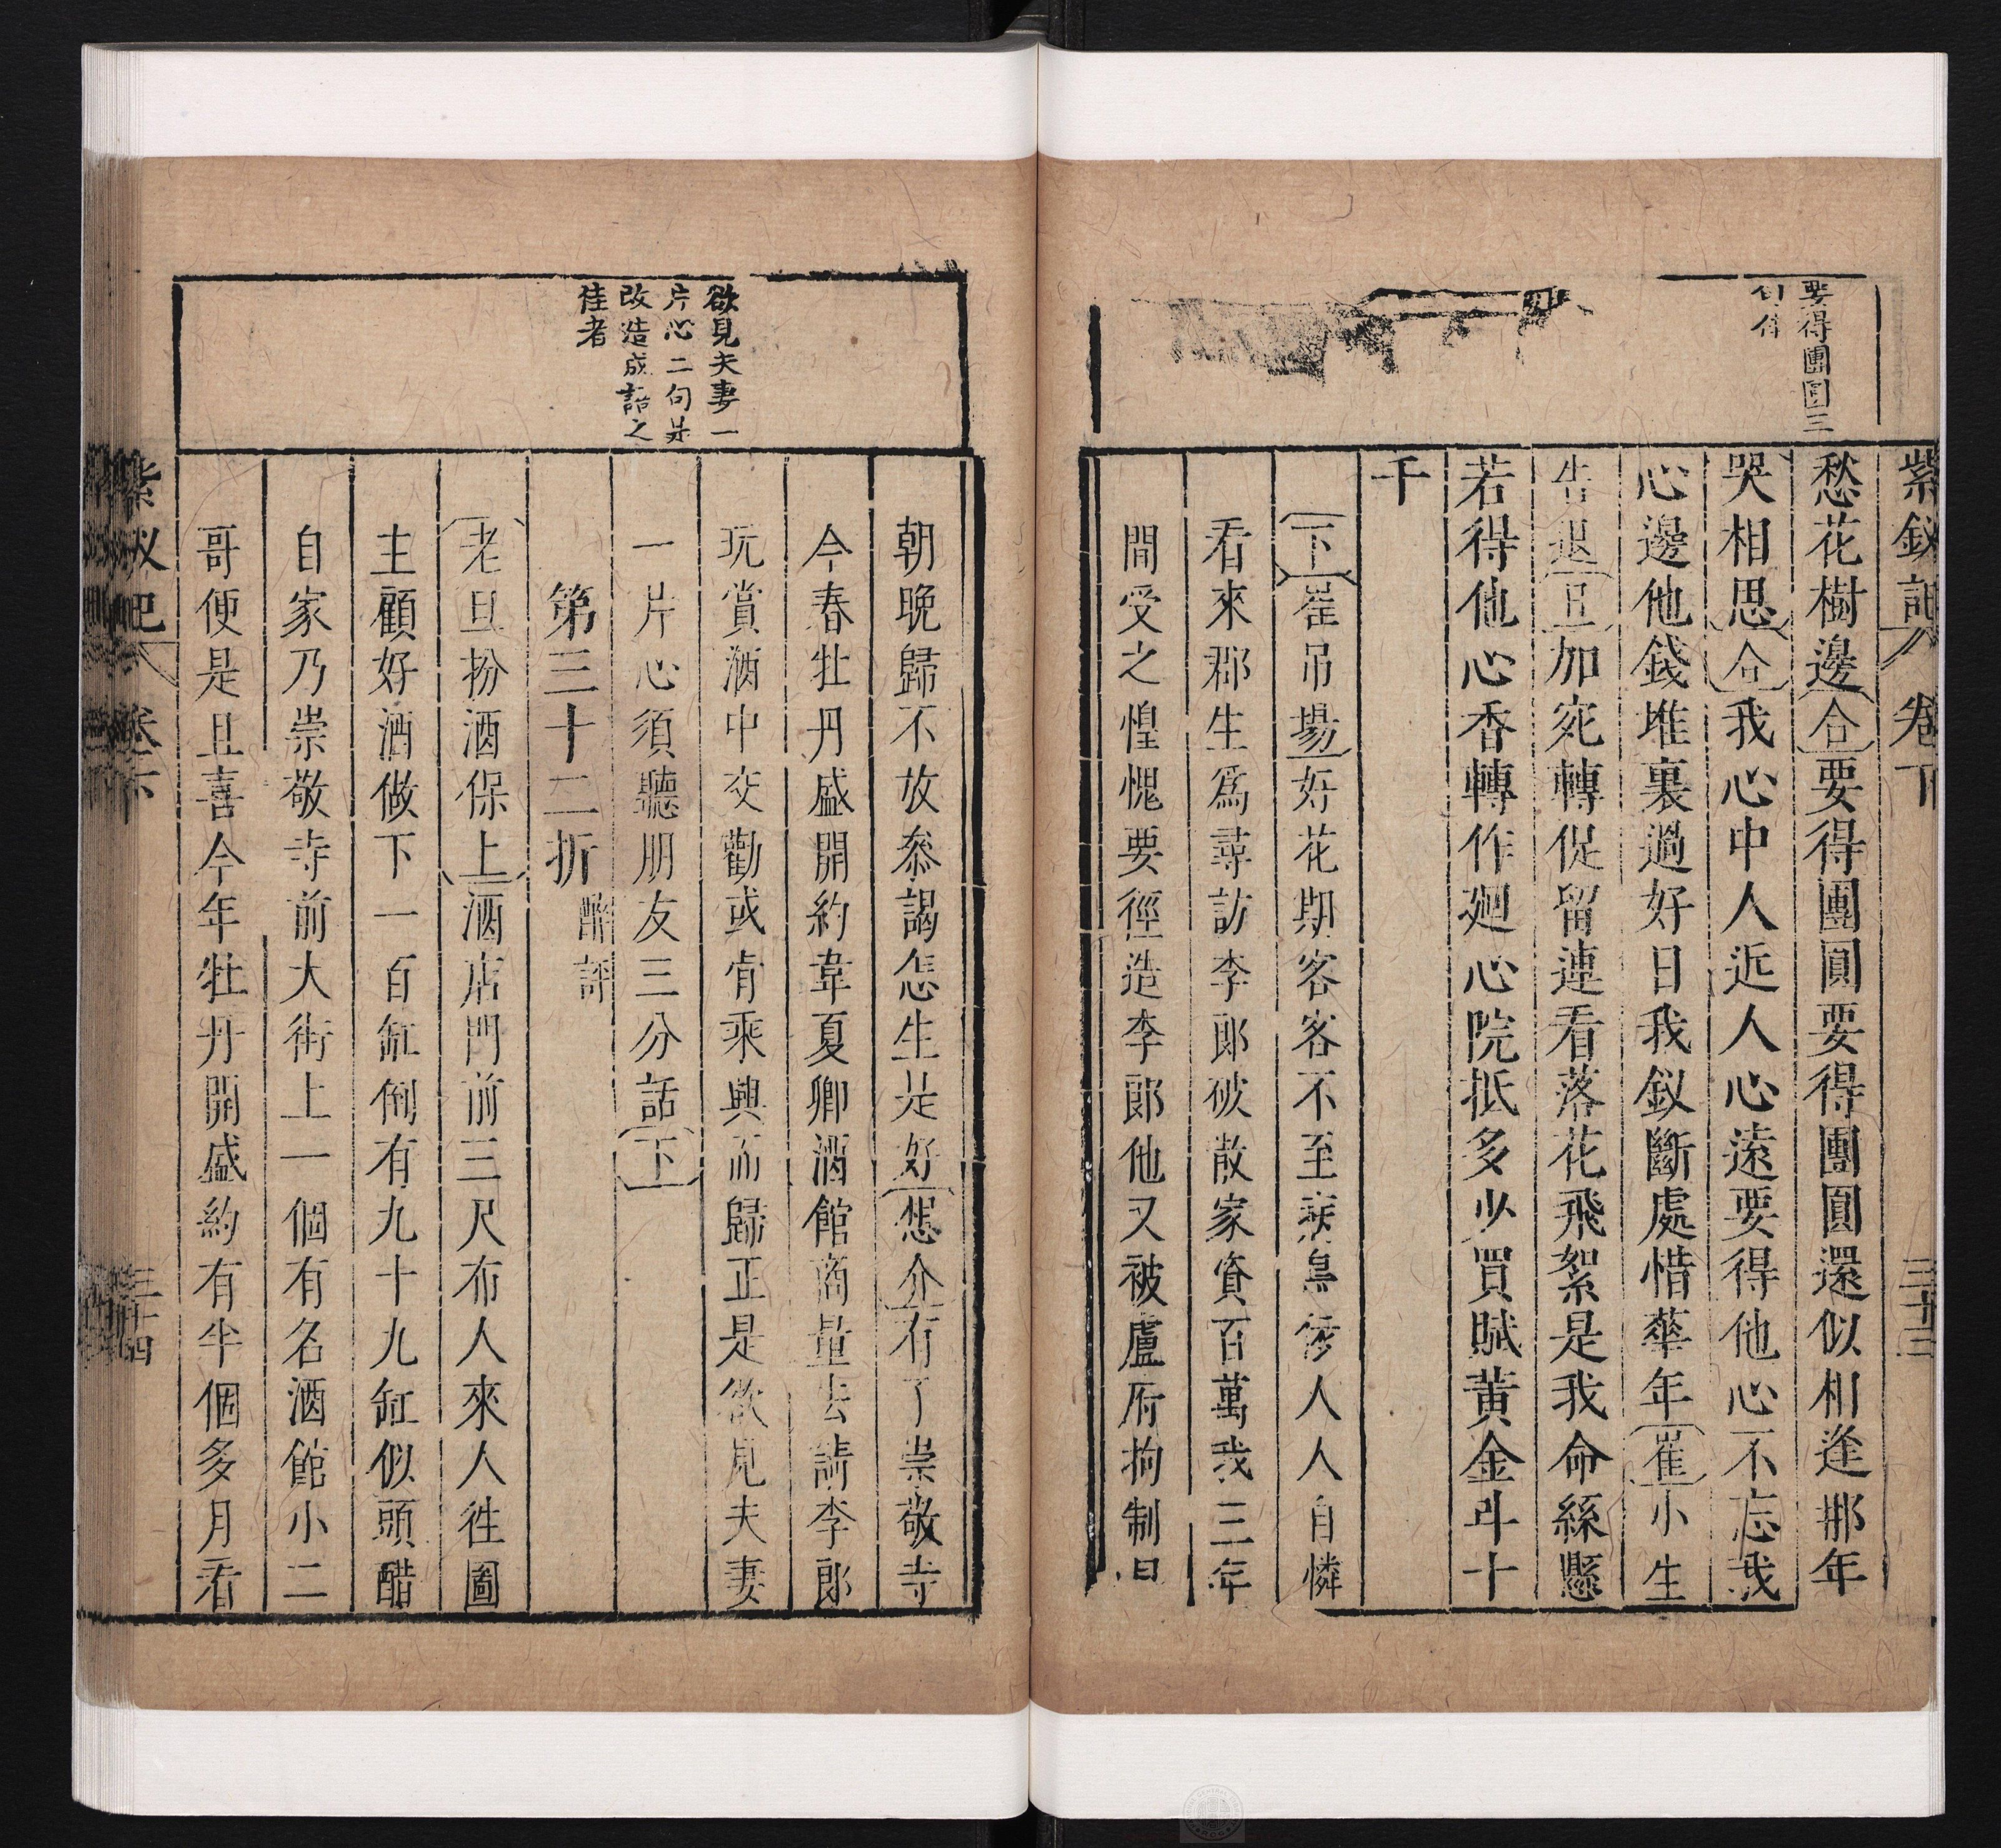 紫釵記 卷下 三十三
要得團圓三
句佳
愁花樹邊合要得團圓要得團圓還似相逢那年
哭相思合我心中人近人心遠要得他心不忘我
心邊他錢堆裏過好日我釵斷處惜華年崔小生
告退旦加宛轉促留連看落花飛絮是我命絲懸
若得他心香轉作廻心院抵多少買賦黄金斗十
千
下崔吊場好花期客客不至病鳥依人人自憐
看來郡生爲尋訪李郎破散家貲百萬我三年
間受之惶愧要徑造李郎他又被盧府拘制日
欲見夫妻一
片心二句是
改造成語之
佳者
朝晚歸不放叅謁怎生是好想介有了崇敬寺
今春牡丹盛開約韋夏卿酒館商量去請李郎
玩賞酒中交勸或肯乘興而歸正是欲見夫妻
一片心須聽朋友三分話下
第三十二折 醉評
老旦扮酒保上酒店門前三尺布人來人徃圖
主顧好酒做下一百缸倒有九十九缸似頭醋
自家乃崇敬寺前大街上一個有名酒館小二
哥便是且喜今年牡丹開盛約有半個多月看
紫釵記 卷下 三十四